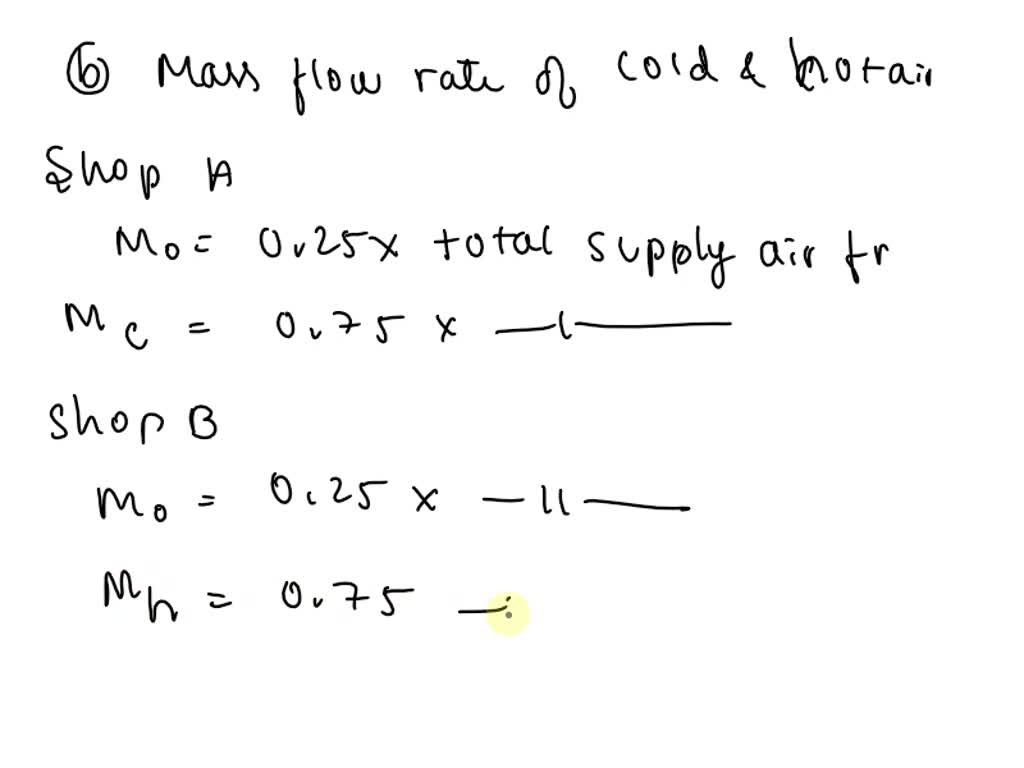 ⑥ Mass flow rate of cold & hot air
Shop A
Mo = 0.25x total supply air fr
Mc = 0.75 x —ı—
Shop B
Mo = 0.25 x —ıı—
Mh = 0.75 —